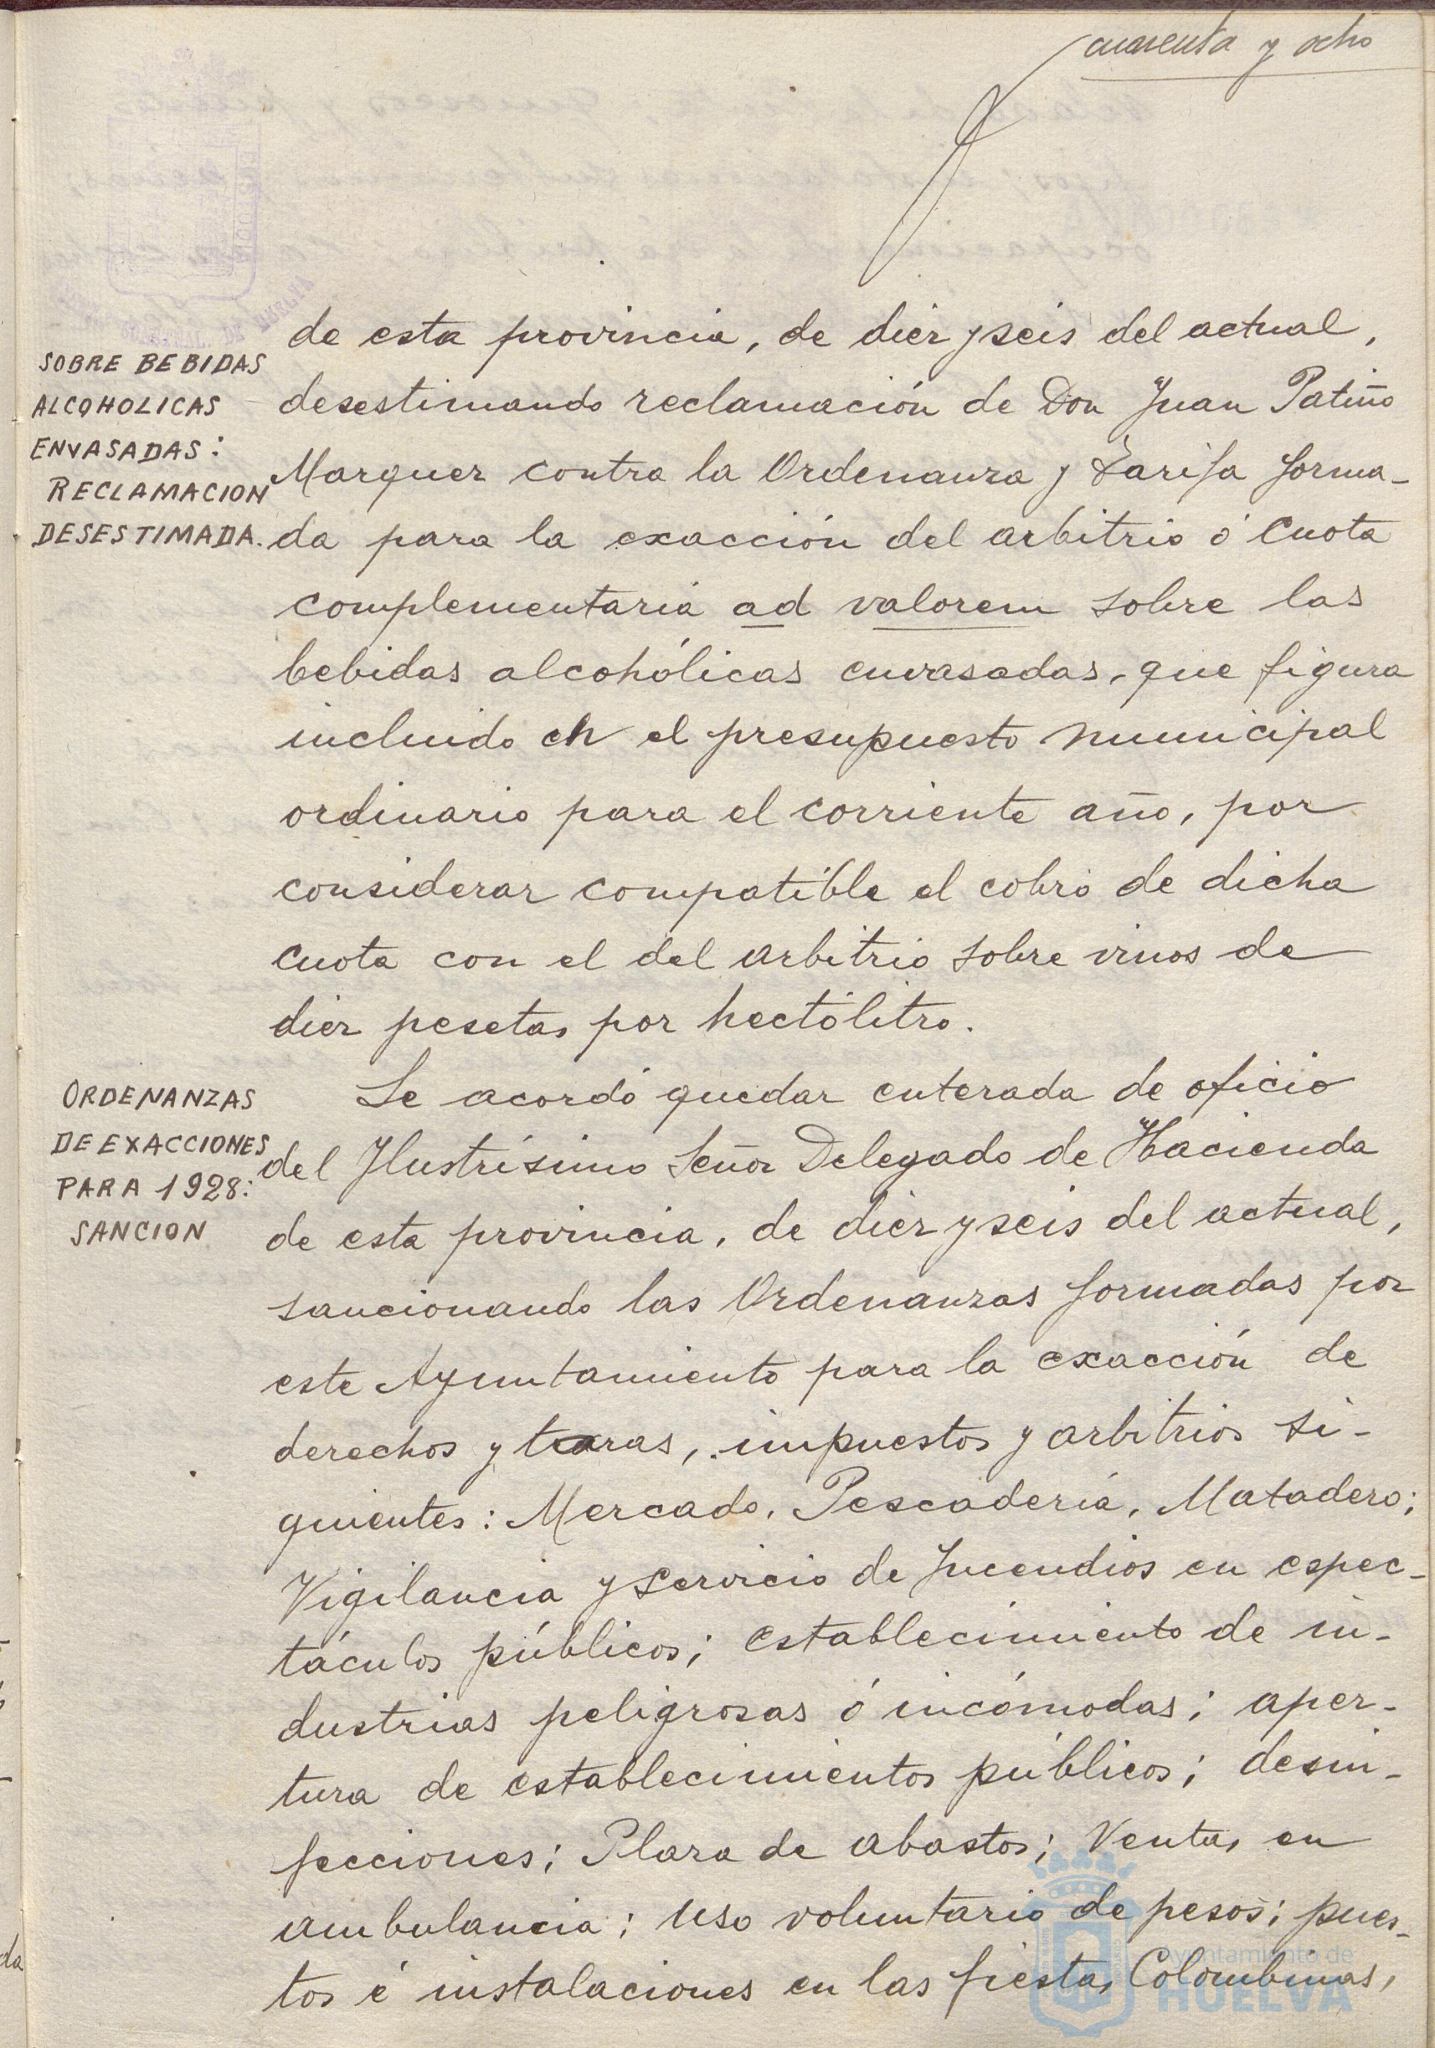 cuarenta y ocho
de esta provincia, de diez y seis del actual,
desestimando reclamación de Don Juan Patiño
Marquez contra la Ordenanza y Tarifa forma-
da para la exacción del arbitrio ó cuota
complementaria ad valorem sobre las
bebidas alcohólicas envasadas, que figura
incluido en el presupuesto municipal
ordinario para el corriente año, por
considerar compatible el cobro de dicha
cuota con el del arbitrio sobre vinos de
diez pesetas por hectólitro.
SOBRE BEBIDAS
ALCOHOLICAS
ENVASADAS:
RECLAMACION
DESESTIMADA.
Se acordó quedar enterada de oficio
del Ilustrísimo Señor Delegado de Hacienda
de esta provincia, de diez y seis del actual,
sancionando las Ordenanzas formadas por
este Ayuntamiento para la exacción de
derechos y tasas, impuestos y arbitrios si-
guientes: Mercado, Pescadería, Matadero;
Vigilancia y servicio de Incendios en espec-
táculos públicos; establecimiento de in-
dustrias peligrosas ó incómodas; aper-
tura de establecimientos públicos; desin-
fecciones; Plaza de abastos; Ventas en
ambulancia; uso voluntario de pesos; pues-
tos é instalaciones en las fiestas Colombinas,
ORDENANZAS
DE EXACCIONES
PARA 1928:
SANCION
Ayuntamiento de
HUELVA